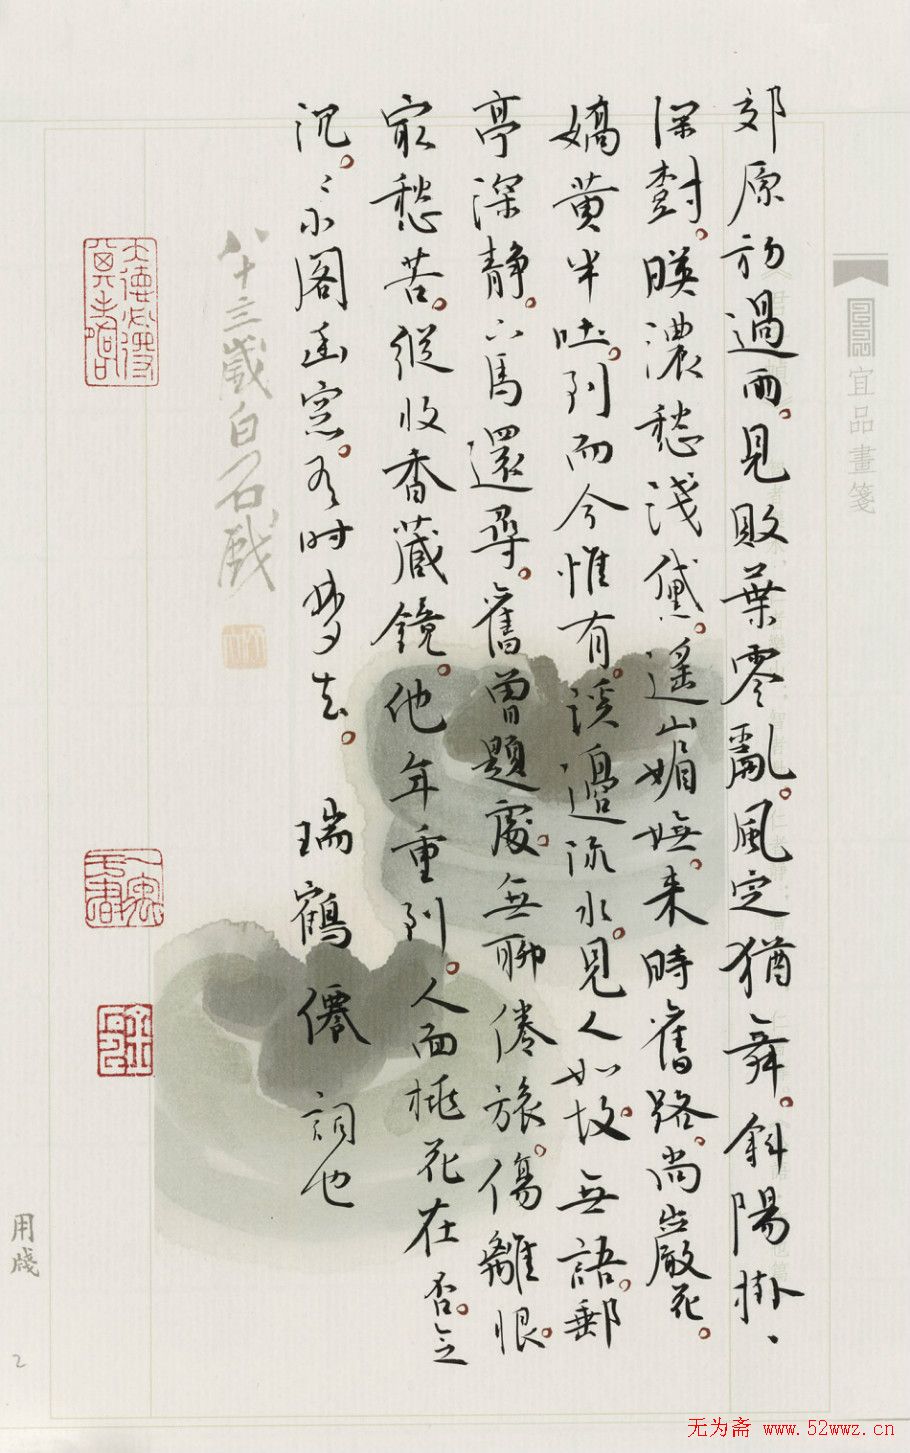 郊原初過雨。見敗葉零亂。風定猶舞。斜陽掛、
深樹。暎濃愁淺黛。遙山媚嫵。来時舊路。尚巖花。
嬌黄半吐。到而今惟有。溪邊流水。見人如故。無語。郵
亭深静。下馬還尋。舊曾題處。無聊倦旅。傷離恨。
最愁苦。縱收香藏鏡。他年重到。人面桃花在否。念
沉。〻小閣幽窓。有时梦去。 瑞鶴僊 詞也
八十三歲白石戲
宜品畫箋
用牋
2
无为斋 www.52wwz.cn